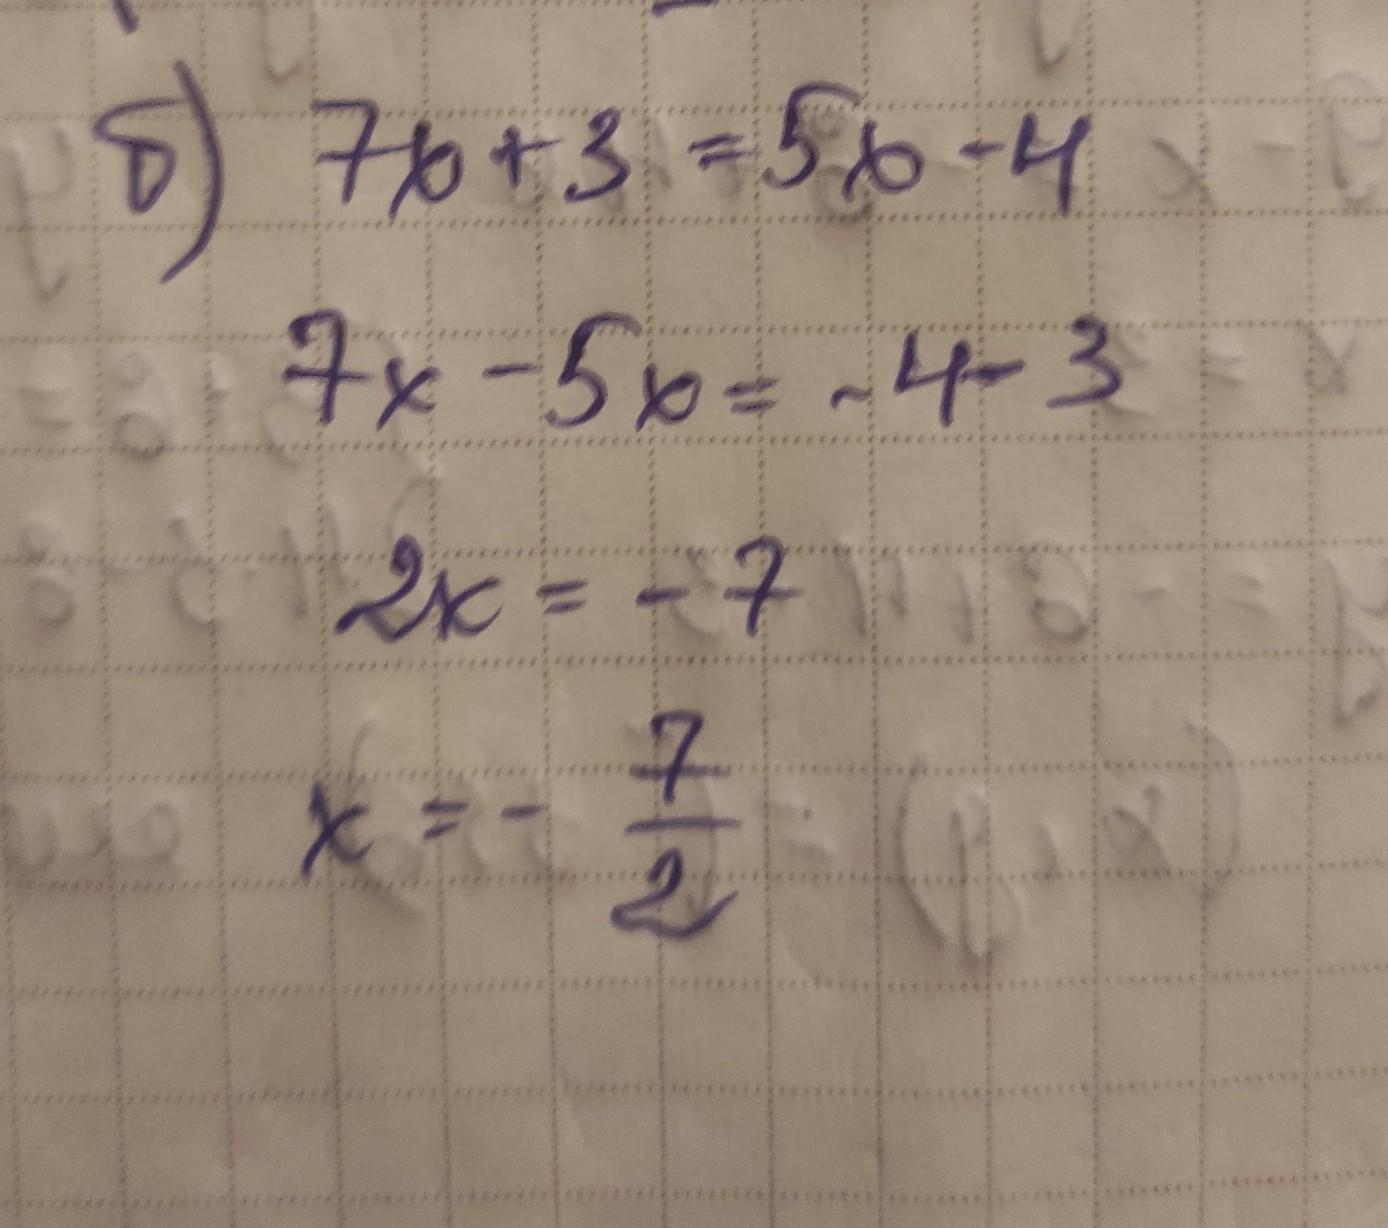 б) 7x+3 = 5x - 4
7x - 5x = - 4 - 3
2x = - 7
x = - 7/2